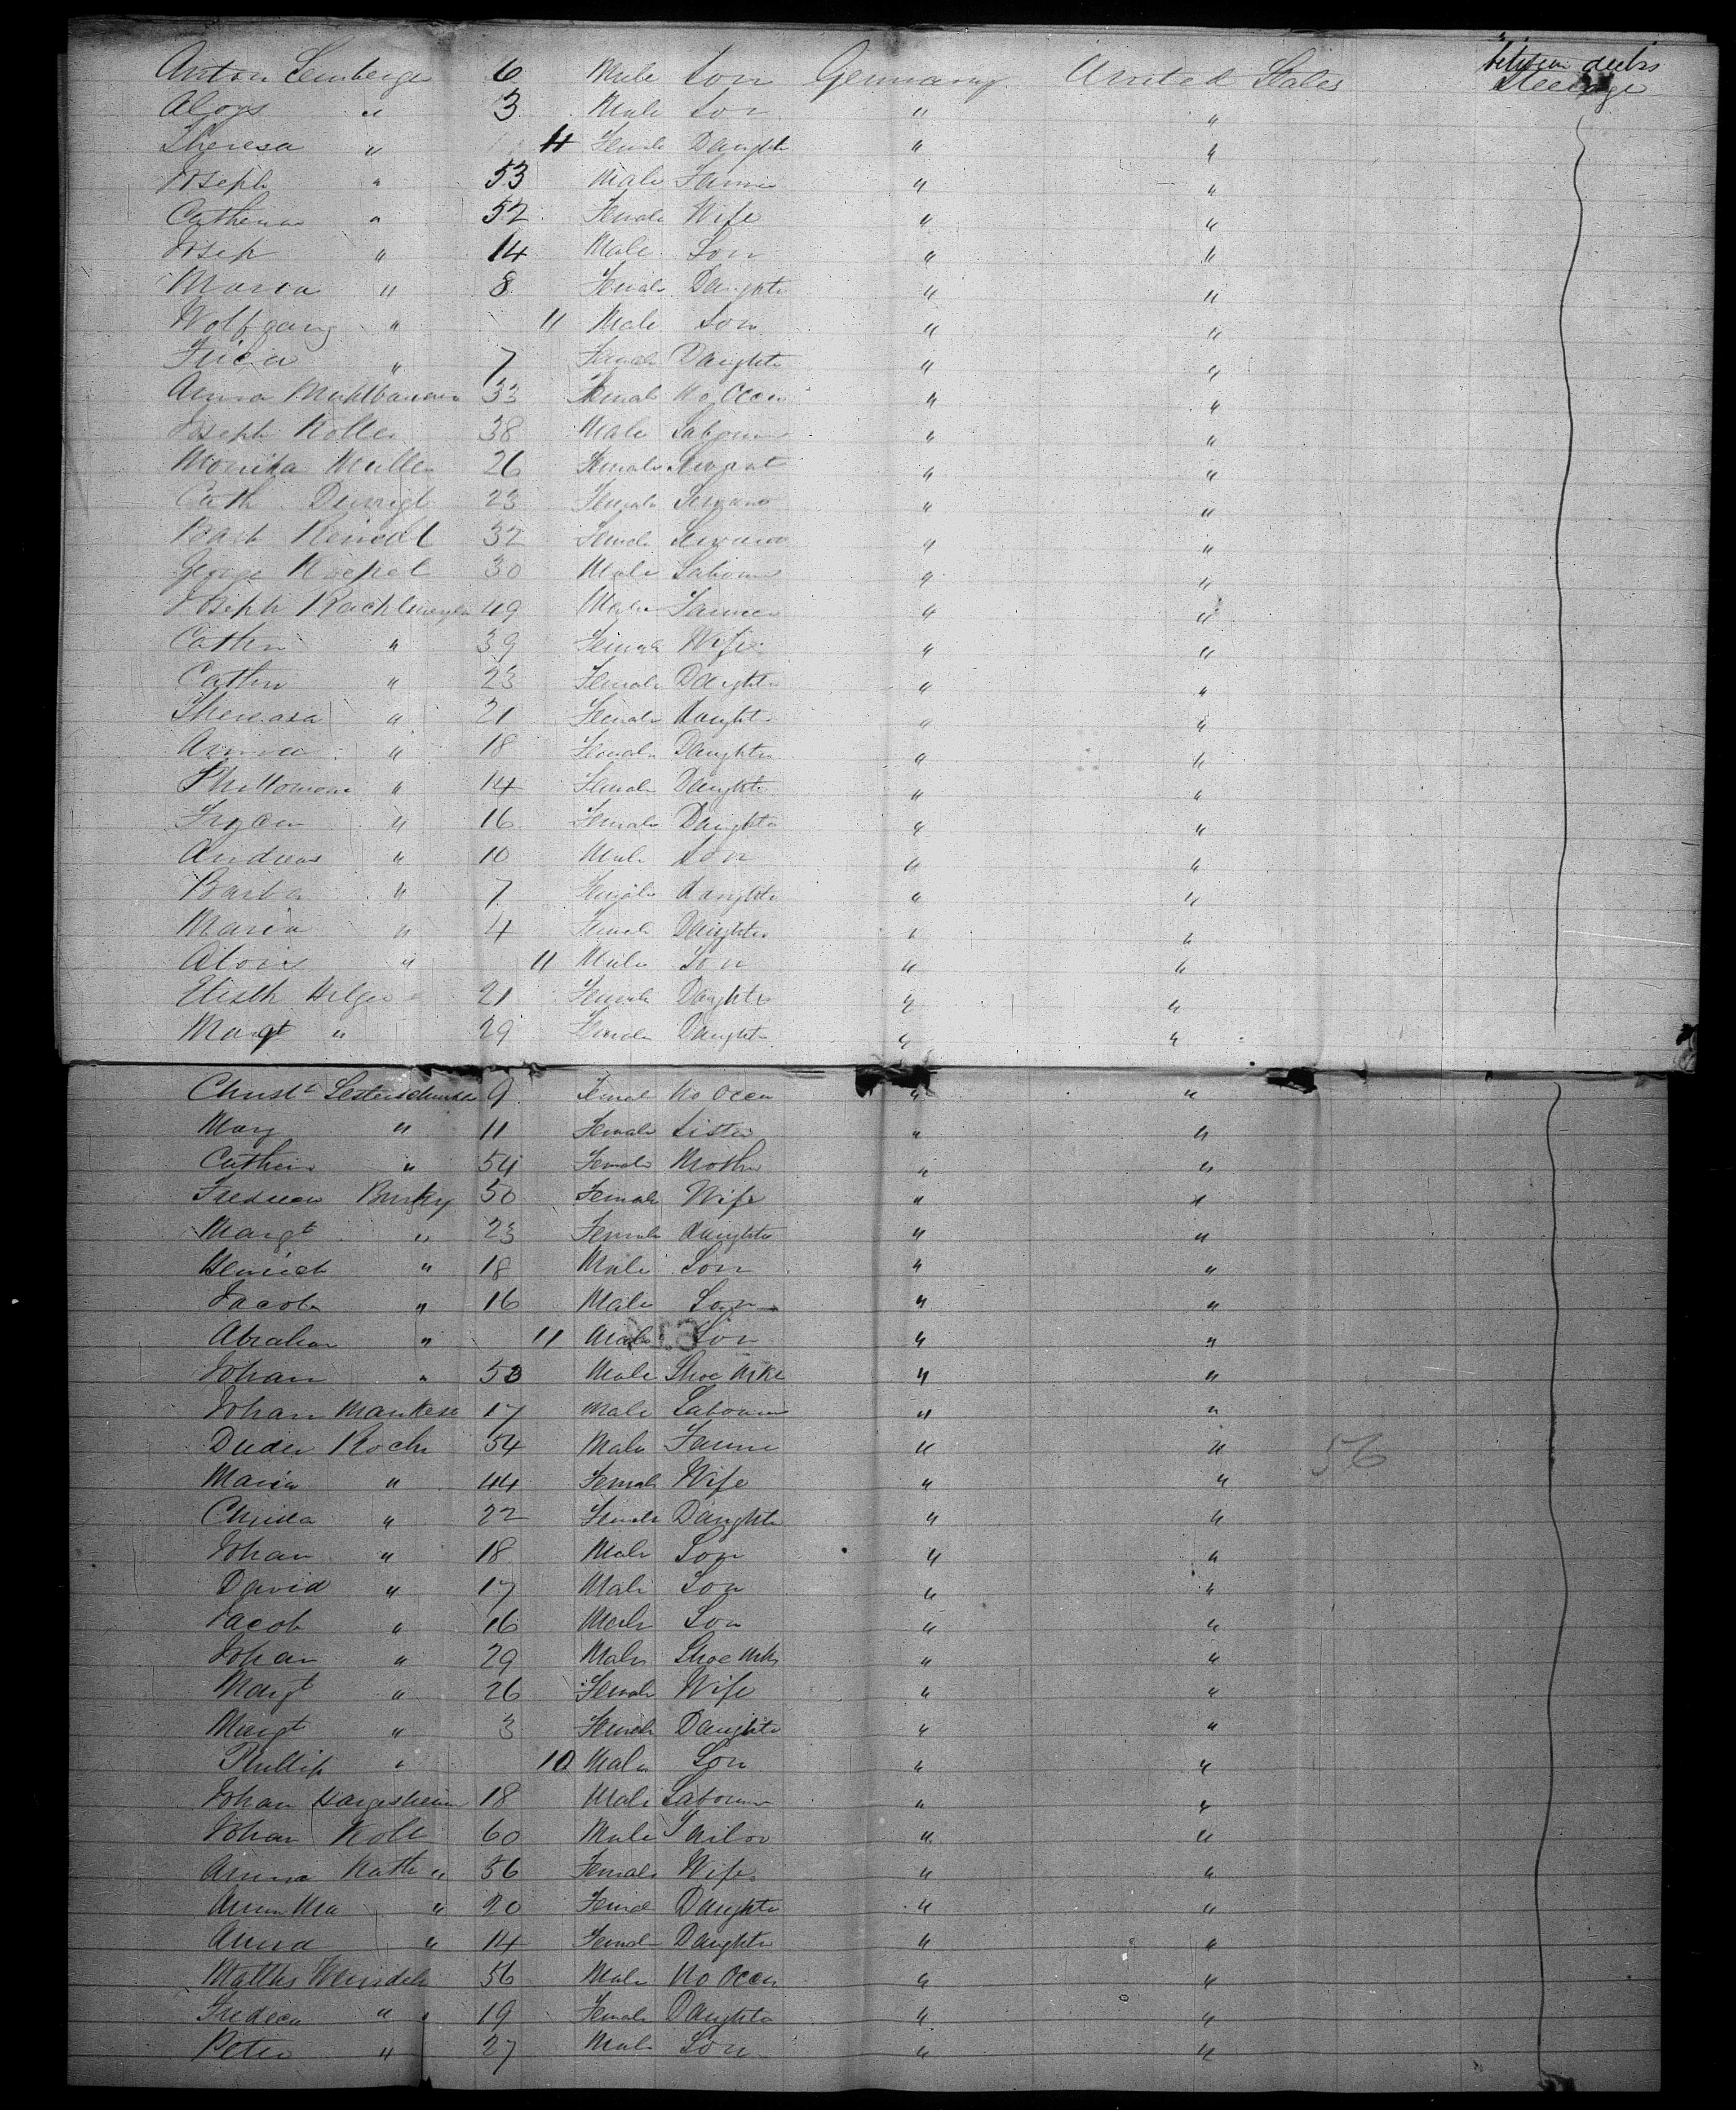 between decks
Anton Lemberger 6 Male Son Germany United States Steerage
Aloys " 3 Male Son " "
Theresa " 11 Female Daughte " "
Joseph " 53 Male Farme " "
Catherin " 52 Female Wife " "
Josep " 14 Male Son " "
Maria " 8 Female Daughte " "
Wolfgang " 11 Male Son " "
" 7 Female Daughte " "
Anna Muhlbauer 33 Female No Occu " "
Joseph Koller 38 Male Labourer " "
Monika Muller 26 Female Servant " "
Cath 23 Female Servant " "
Barb 32 Female Servant " "
George Koepel 30 Male Labourer " "
Joseph 49 Male Farmer " "
Cathn " 39 Female Wife " "
Cathn " 23 Female Daughte " "
Thereasa " 21 Female daughte " "
Anna " 18 Female Daughte " "
Phillomena " 14 Female Daughte " "
" 16 Female Daughte " "
Andreas " 10 Male Son " "
Barba " 7 Female daughte " "
Maria " 4 Female Daughte " "
Alois " 11 Male Son " "
Elisth Hilger 21 Female Daughte " "
Margt " 29 Female Daughte " "
Christe 9 Female No Occu " "
Mary " 11 Female Sister " "
Cathein " 54 Female Mothe " "
Bursky 50 Female Wife " "
Margt " 23 Female daughte " "
Heinrich " 18 Male Son " "
Jacob " 16 Male Son " "
Abraham " 11 Male Son " "
Johan " 53 Male Shoe Mke " "
Johan 17 Male Labourer " "
Koch 54 Male Farme " " 56
Maria " 44 Female Wife " "
" 22 Female Daughte " "
Johan " 18 Male Son " "
David " 17 Male Son " "
Jacob " 16 Male Son " "
Johan " 29 Male Shoe Mke " "
Margt " 26 Female Wife " "
Margt " 3 Female Daughte " "
Phillip " 10 Male Son " "
Johan Hargesheim 18 Male Labourer " "
Johan Kolb 60 Male Tailor " "
Anna Kath " 56 Female Wife " "
Anna Ma " 20 Female Daughte " "
Anna " 14 Female Daughte " "
Matths 56 Male No Occu " "
" 19 Female Daughte " "
Peter " 27 Male Son " "